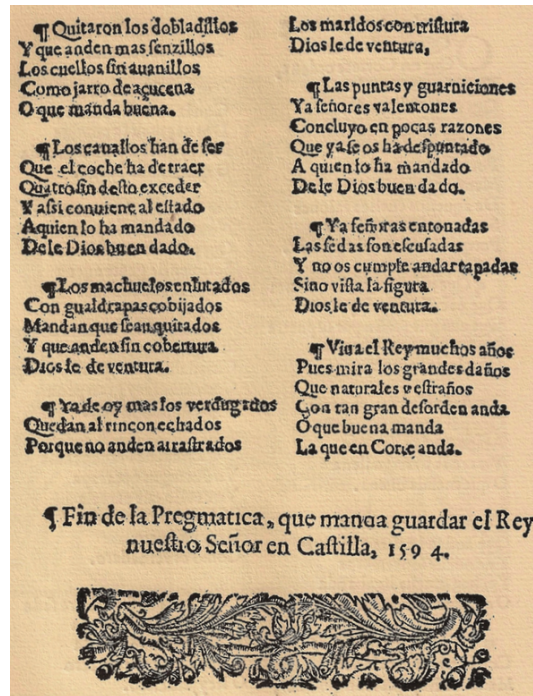 ¶ Quitaron los dobladillos
Y que anden mas senzillos
Los cuellos sin auanillos
Como jarro de açucena
O que manda buena.
¶ Los cauallos han de ser
Que el coche ha de traer
Quatro sin desto exceder
Y assi conuiene al estado
A quien lo ha mandado
De le Dios buen dado.
¶ Los machuelos enlutados
Con gualdrapas cobijados
Mandan que sean quitados
Y que anden sin cobertura
Dios le de ventura.
¶ Ya de oy mas los verdugados
Quedan al rincon echados
Porque no anden arrastrados
Los maridos con tristura
Dios le de ventura,
¶ Las puntas y guarniciones
Ya señores valentones
Concluyo en pocas razones
Que ya se os ha despuntado
A quien lo ha mandado
De le Dios buen dado.
¶ Ya señoras entonadas
Las sedas son escusadas
Y no os cumple andar tapadas
Sino vista la figura
Dios le de ventura.
¶ Viua el Rey muchos años
Pues mira los grandes daños
Que naturales y estraños
Con tan gran desorden anda
O que buena manda
La que en Corte anda.
¶ Fin de la Pregmatica, que manda guardar el Rey
nuestro Señor en Castilla, 1594.